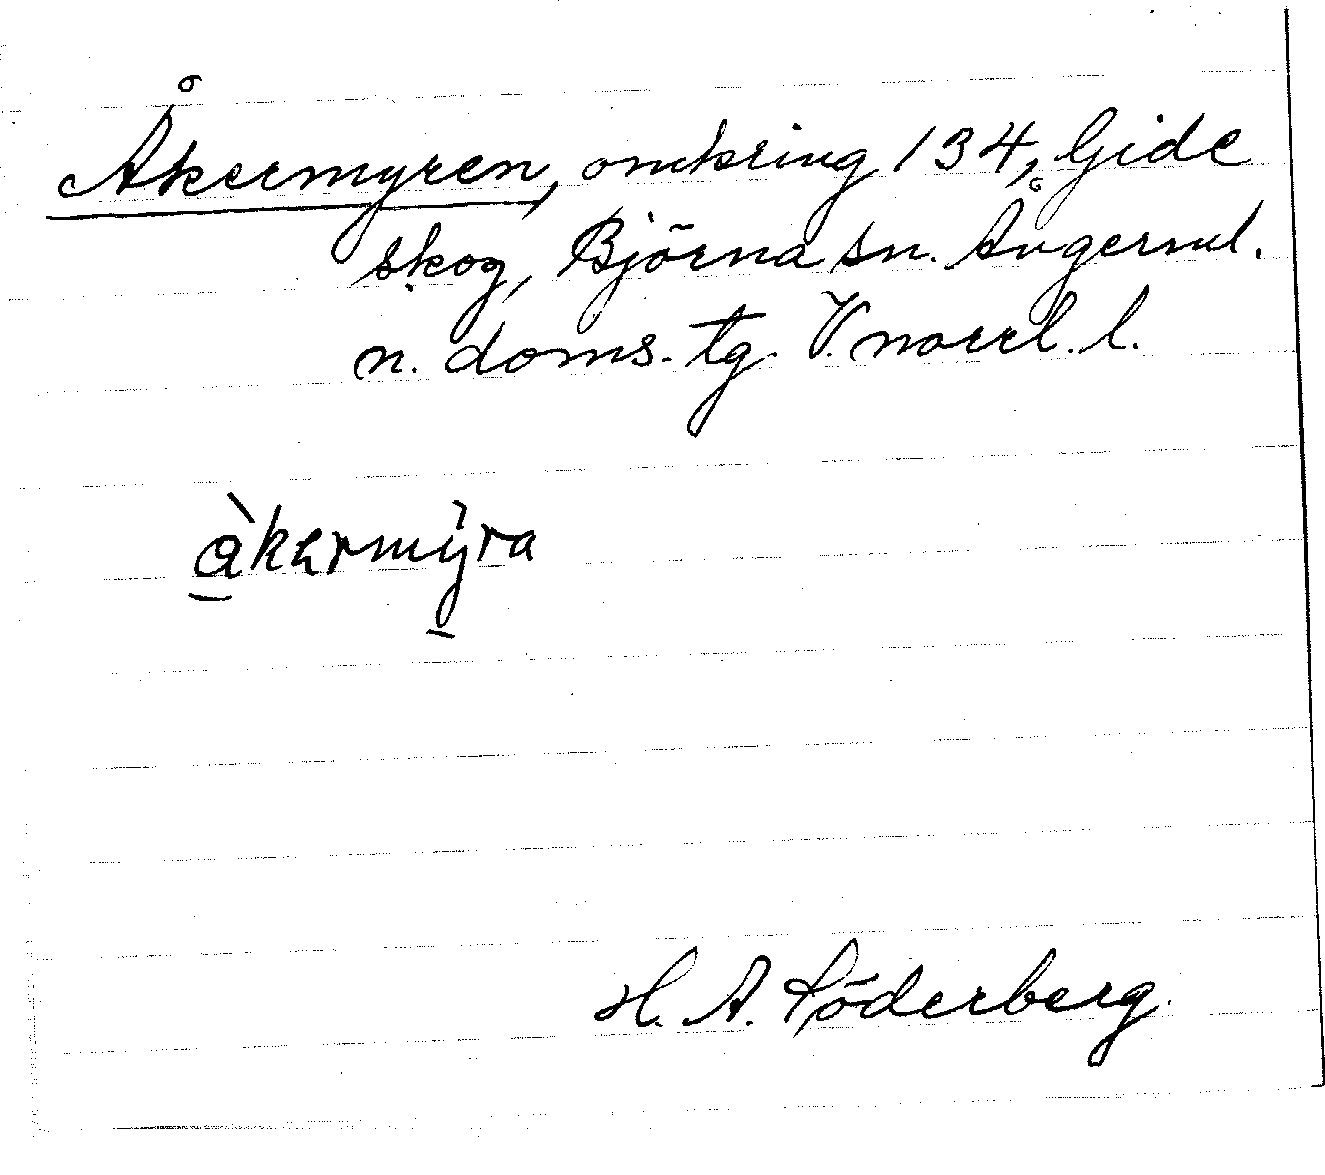 Åkermyren, omkring 134, Gide
skog, Björna sn. Ångerml.
n. doms. tg. V. norrl. l.
åkermỳra
H. A. Söderberg.